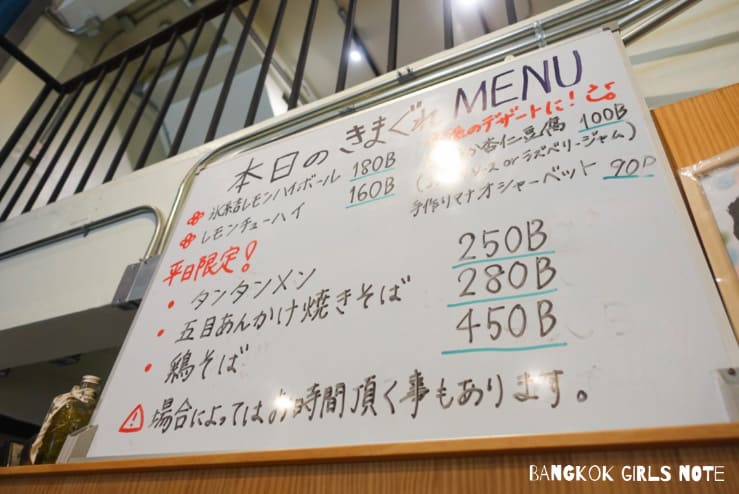 本日のきまぐれ MENU
氷結レモンハイボール 180B
レモンチューハイ 160B
のデザートに!
杏仁豆腐 100B
ース or ラズベリージャム)
手作りマナオシャーベット 90B
平日限定!
・タンタンメン 250B
・五目あんかけ焼きそば 280B
・鶏そば 450B
場合によってはお時間頂く事もあります。
BANGKOK GIRLS NOTE